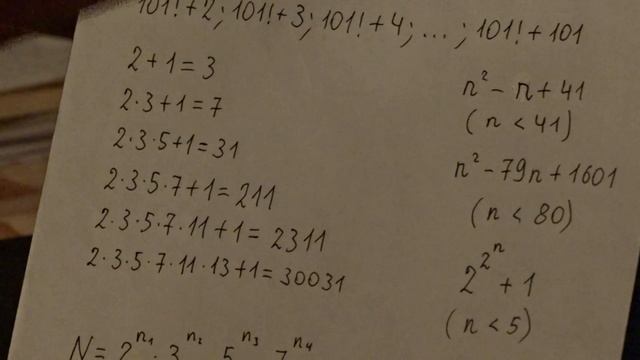 101!+2; 101!+3; 101!+4; ...; 101!+101
2+1=3
2·3+1=7
2·3·5+1=31
2·3·5·7+1=211
2·3·5·7·11+1=2311
2·3·5·7·11·13+1=30031
n² - n + 41
(n < 41)
n² - 79n + 1601
(n < 80)
2^2^n + 1
(n < 5)
N = 2^n₁ · 3^n₂ · 5^n₃ · 7^n₄